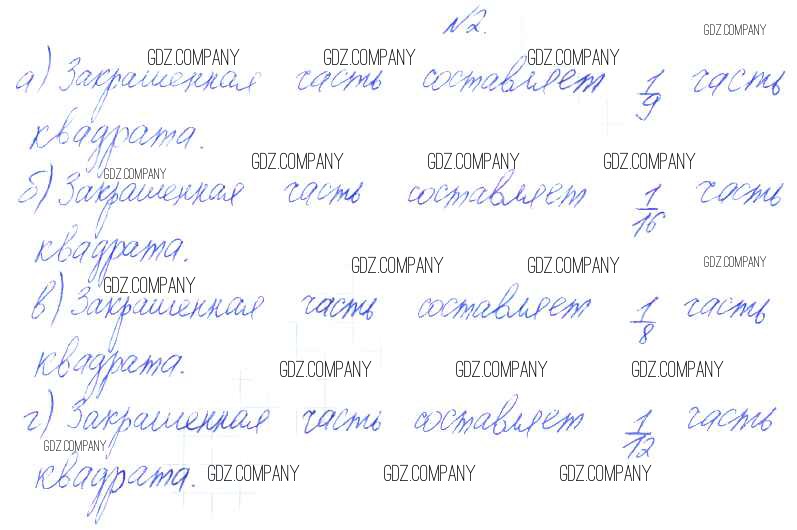 №2.
GDZ.COMPANY
GDZ.COMPANY GDZ.COMPANY GDZ.COMPANY
а) Закрашенная часть составляет 1/9 часть
квадрата.
GDZ.COMPANY GDZ.COMPANY GDZ.COMPANY
GDZ.COMPANY
б) Закрашенная часть составляет 1/16 часть
квадрата.
GDZ.COMPANY GDZ.COMPANY GDZ.COMPANY
GDZ.COMPANY
в) Закрашенная часть составляет 1/8 часть
квадрата.
GDZ.COMPANY GDZ.COMPANY GDZ.COMPANY
г) Закрашенная часть составляет 1/12 часть
GDZ.COMPANY
квадрата.
GDZ.COMPANY GDZ.COMPANY GDZ.COMPANY